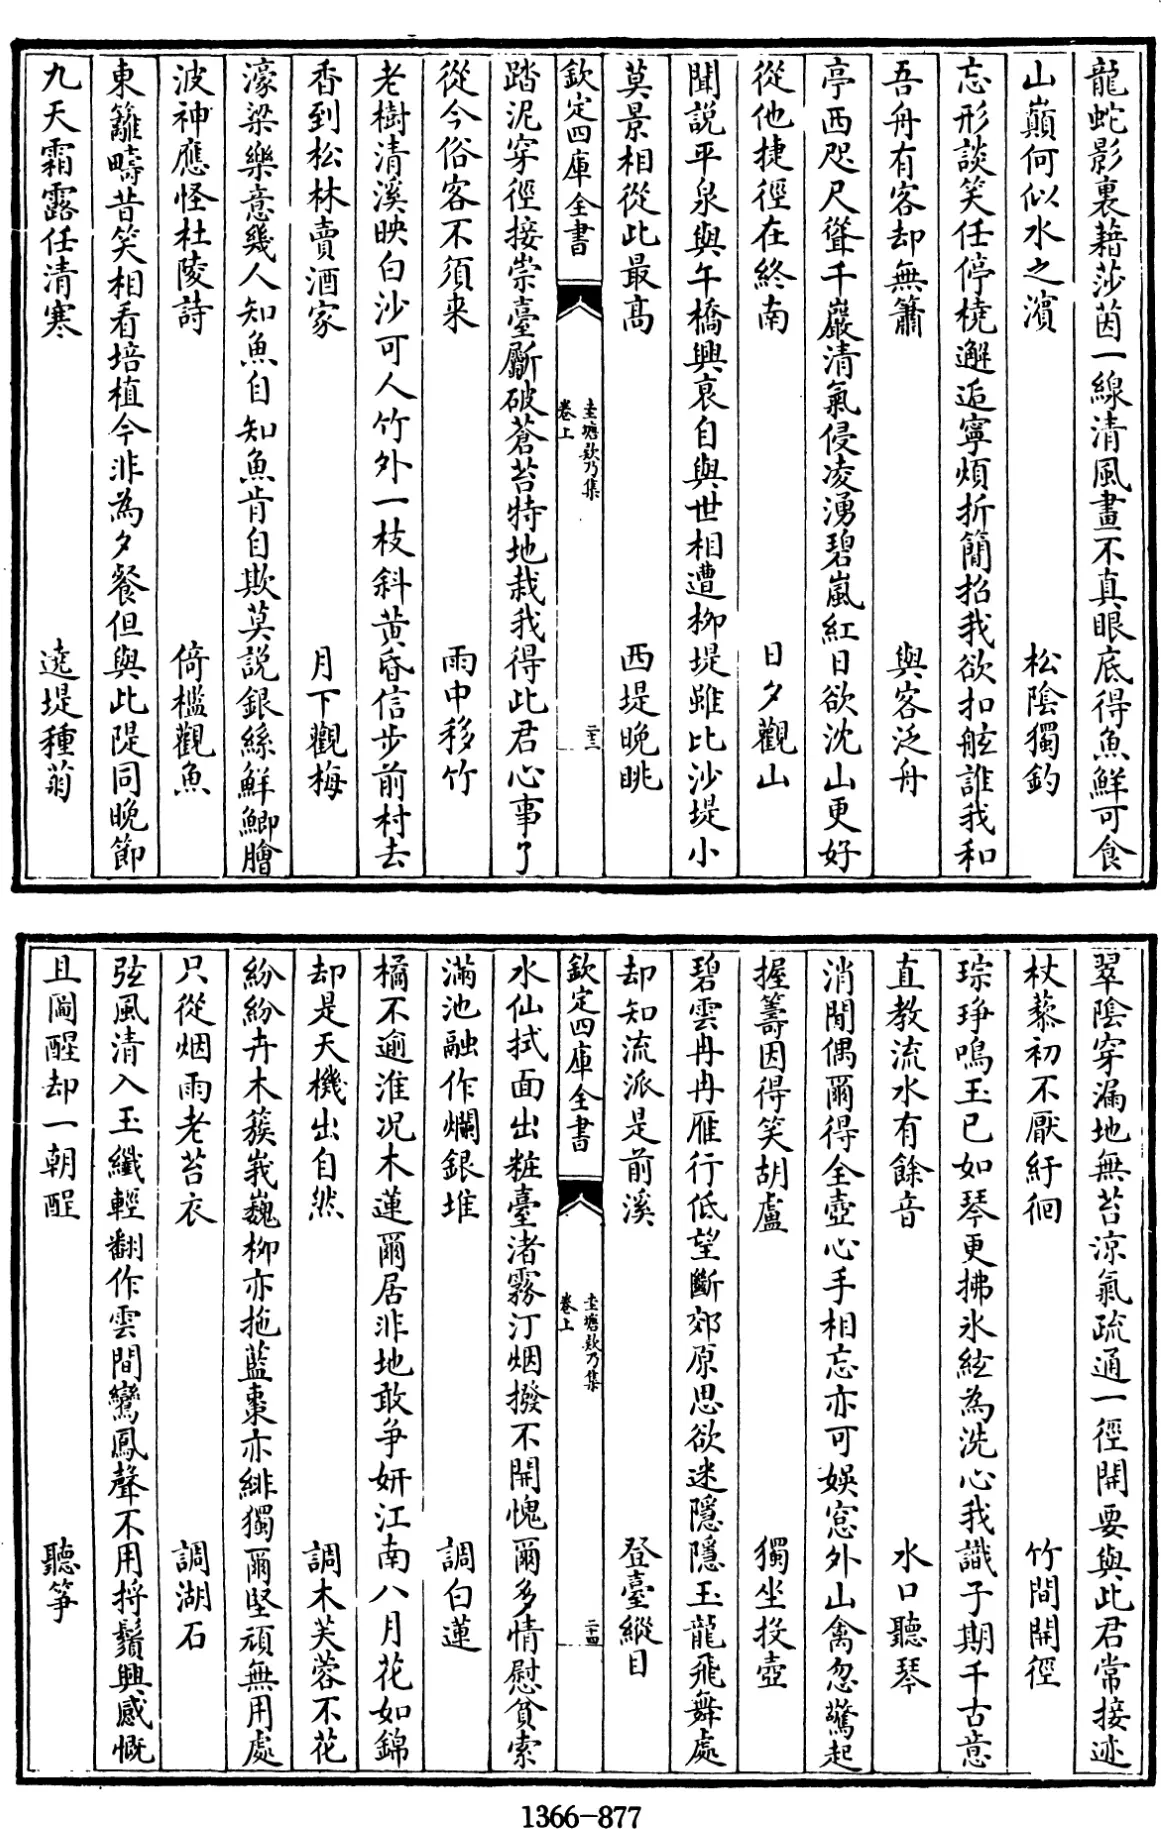 龍蛇影裏藉莎茵一線清風畫不真眼底得魚鮮可食
山巔何似水之濱 松陰獨釣
忘形談笑任停橈邂逅寧煩折簡招我欲扣舷誰我和
吾舟有客却無簫 與客泛舟
亭西咫尺聳千巖清氣侵凌湧碧嵐紅日欲沈山更好
從他捷徑在終南 日夕觀山
聞說平泉與午橋興衰自與世相遭柳堤雖比沙堤小
莫景相從此最高 西堤晚眺
欽定四庫全書 圭塘欸乃集 卷上 二十三
踏泥穿徑接崇臺斸破蒼苔特地栽我得此君心事了
從今俗客不須来 雨中移竹
老樹清溪映白沙可人竹外一枝斜黃昏信步前村去
香到松林賣酒家 月下觀梅
濠梁樂意幾人知魚自知魚肯自欺莫說銀絲鮮鯽膾
波神應怪杜陵詩 倚檻觀魚
東籬疇昔笑相看培植今非為夕餐但與此隄同晚節
九天霜露任清寒 遶堤種菊
翠陰穿漏地無苔涼氣疏通一徑開要與此君常接迹
杖藜初不厭紆徊 竹間開徑
琮琤鳴玉已如琴更拂氷絃為洗心我識子期千古意
直教流水有餘音 水口聽琴
消閒偶爾得全壺心手相忘亦可娛窓外山禽忽驚起
握籌因得笑胡盧 獨坐投壺
碧雲冉冉雁行低望斷郊原思欲迷隱隱玉龍飛舞處
却知流派是前溪 登臺縱目
欽定四庫全書 圭塘欸乃集 卷上 二十四
水仙拭面出粧臺渚霧汀烟撥不開愧爾多情慰貧索
滿池融作爛銀堆 調白蓮
橘不逾淮况木蓮爾居非地敢争妍江南八月花如錦
却是天機出自然 調木芙蓉不花
紛紛卉木蔟峩巍柳亦拖藍棗亦緋獨爾堅頑無用處
只從烟雨老苔衣 調湖石
弦風清入玉纖輕翻作雲間鸞鳳聲不用捋鬚興感慨
且圖醒却一朝酲 聽筝
1366-877